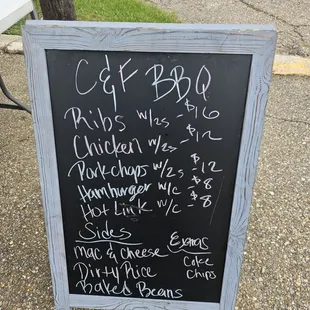 C & F BBQ
Ribs w/2s - $16
Chicken w/2s - $12
Porkchops w/2s - $12
Hamburger w/c - $8
Hot Link w/c - $8
Sides
Mac & Cheese
Dirty Rice
Baked Beans
Extras
Coke
Chips